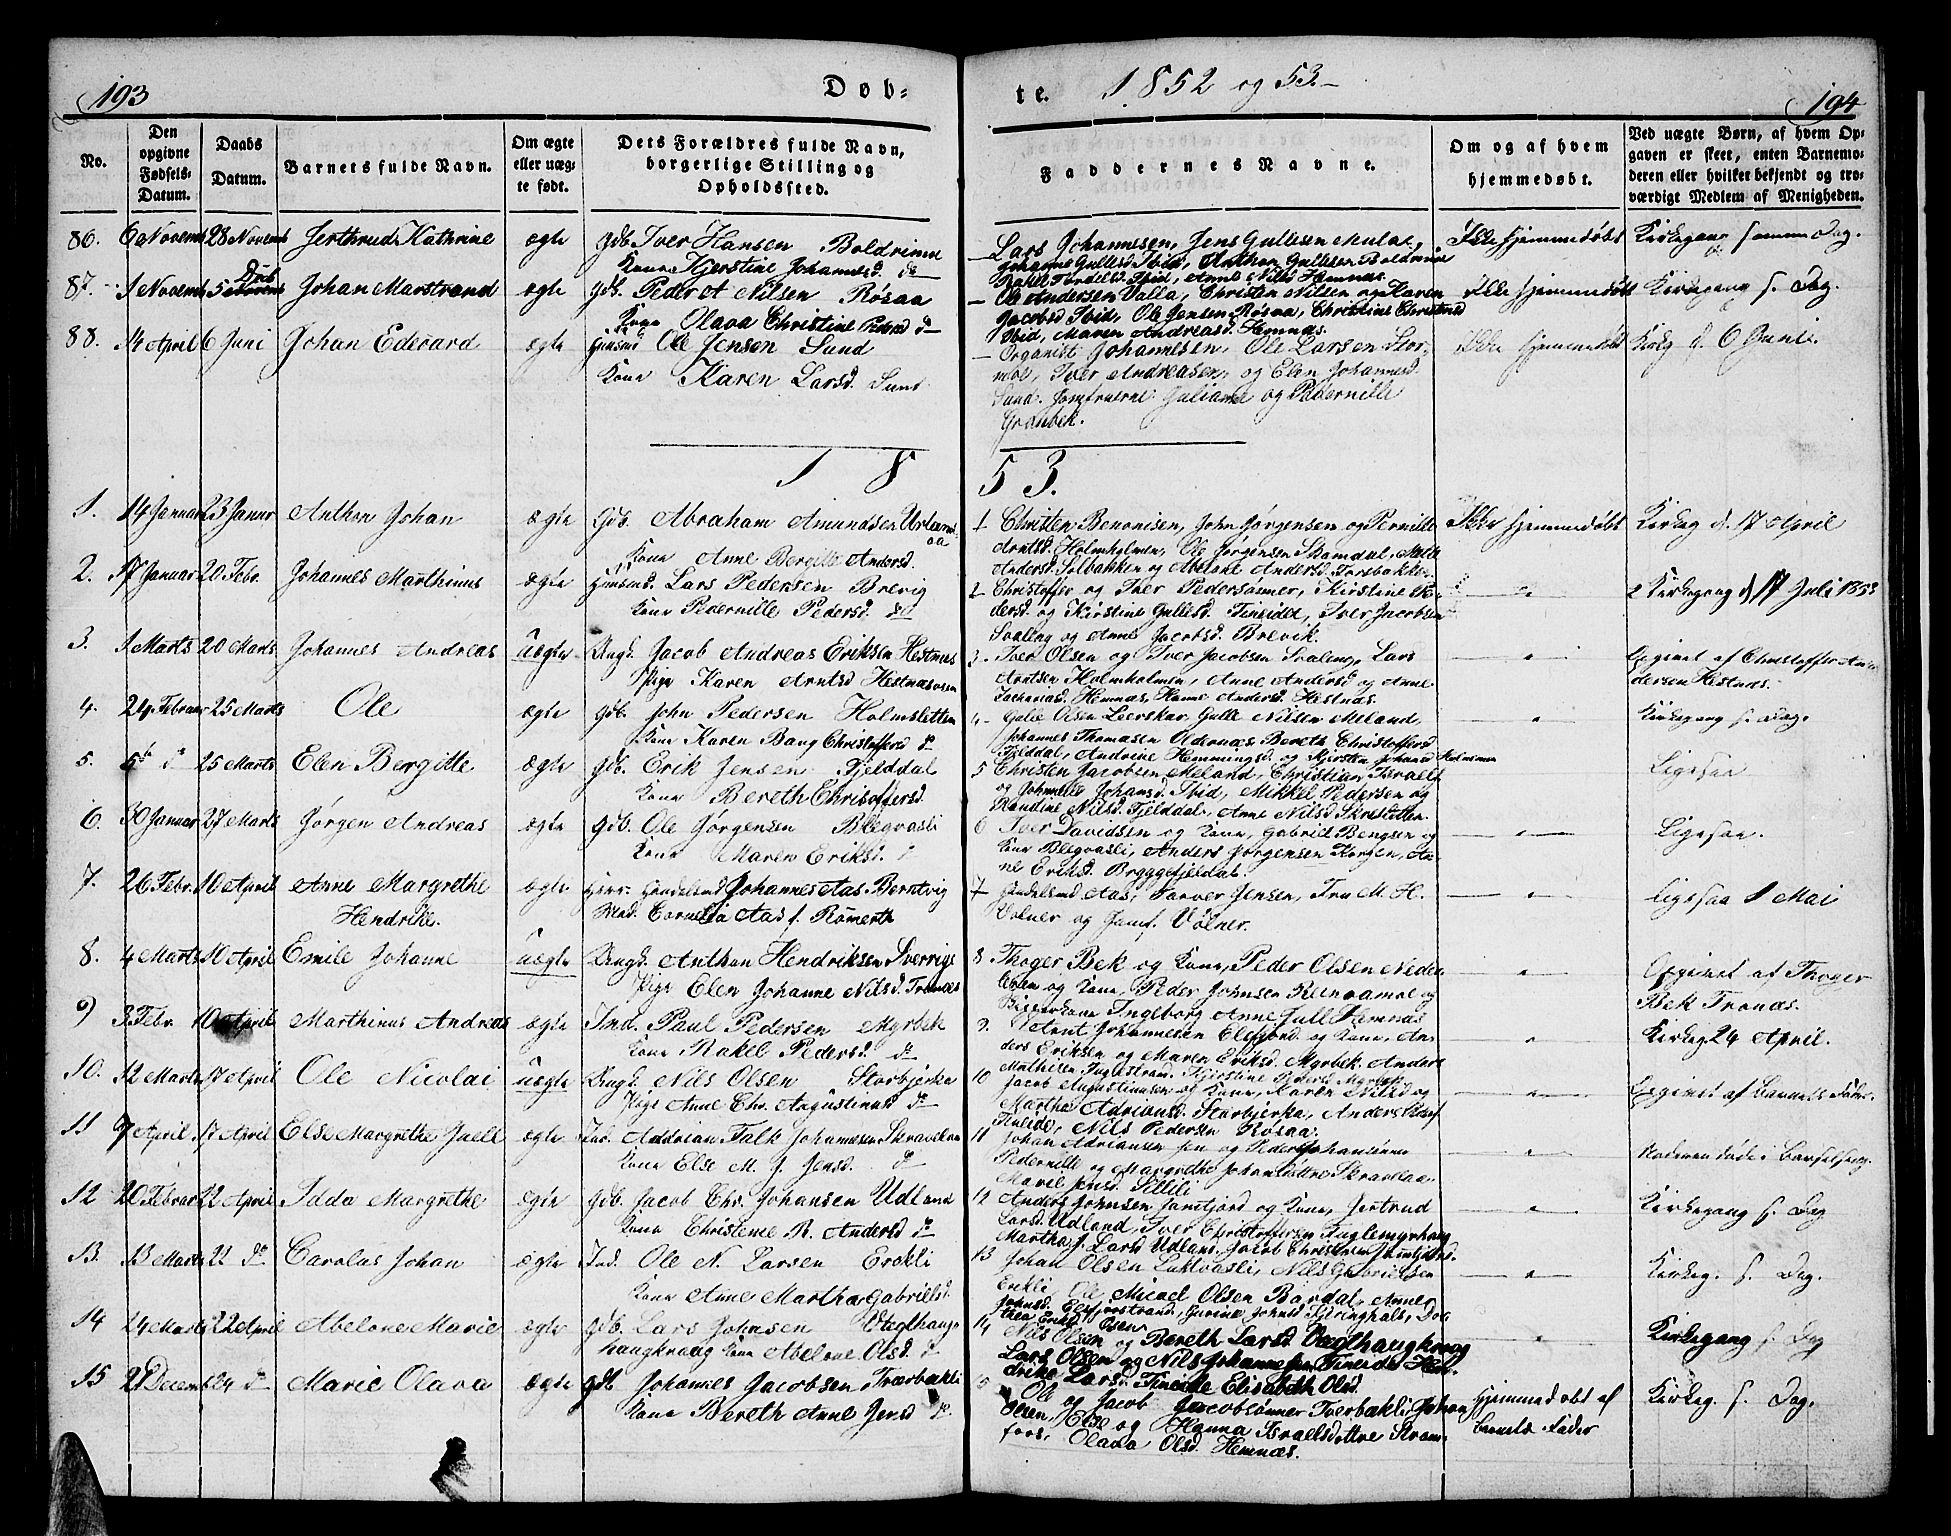 193
Døb-
te.
1852 og 53.
194
No.
Den opgivne Fødsels-Datum.
Daabs Datum.
Barnets fulde Navn.
Om ægte eller uæg-te født.
Dets Forældres fulde Navn, borgerlige Stilling og Opholdssted.
Faddernes Navne.
Om og af hvem hjemmedøbt.
Ved uægte Børn, af hvem Op-gaven er skeet, enten Barnemo-deren eller hvilket bekjendt og tro-værdigt Medlem af Menigheden.
86. 6 Novemb 28 Novemb Jerthrud Kathrine ægte Gdb. Iver Hansen Boldrinne
Kone Kjerstine Johannesd. do
Lars Johannesen, Jens Gullesen
Johanne Gullesd Ibid, Anthon Gullesen Boldrinne
Rakel Ibid, Anne Nilsd Hemnæs.
Ikke hjemmedøbt Kirkegang samme Dag.
87. 1 Novemb 5 Decb Johan Marstrand ægte Gdb. Peder A Nilsen Røsaa
Kone Olava Christine Pedersd do
Ole Andersen Valla, Christen Nilsen og Karen
Jacobsd Ibid, Ole Jensen Røsaa, Christine Christensd
Ibid, Maren Andreasd. Hemnæs.
Ikke hjemmedøbt Kirkegang s. Dag.
88. 14 April 6 Juni Johan Edevard ægte Huusmd Ole Jensen Sund
Kone Karen Larsd. Sund
Organist Johannesen, Ole Larsen Stor-
moe, Iver Andreasen, og Elen Johannesd.
Sund. Jomfruerne Juliane og Pedernille
Grønbek.
Ikke hjemmedøbt Kirkg s. 6 Juni.
1853.
1. 14 Januar 23 Januar Anthon Johan ægte Gdb. Abraham Amundsen Urland-
aa
Kone Anne Bergitte Andersd.
1 Christen Benonisen, John Jørgensen og Pernille
Arntsd. Holmholmen, Ole Jørgensen
Andersd. Solbakken og Abelone Andersd.
Ikke hjemmedøbt Kirkeg d. 17 April
2. 17 Januar 20 Febr. Johannes Marthinus ægte Huusmd. Lars Pedersen Brevig
Kone Pedernille Pedersd. do
2 Christoffer og Iver Pedersønner, Kirstine Pe-
dersd. og Kirstine Gullesd. Fineidet, Iver Jacobsen
Svaling og Anne Jacobsd. Brevik.
2 Kirkegang d 17 Juli 1853
3. 1 Marts 20 Marts Johannes Andreas uægte Ungk. Jacob Andreas Eriksen Hestnæs
Pige Karen Arntsd Hestnæs
3. Iver Olsen og Iver Jacobsen Svaling, Lars
Arntsen Holmholmen, Anne Andersd og Anne
Zachariasd. Hemnæs, Hanna Andersd. Hestnæs.
Opgivet af Christoffer An-
dersen Hestnæs.
4. 24 Februar 25 Marts Ole ægte Gdb. John Pedersen Holmsletten
Kone Karen Bang Christoffersd do
4 Olsen Leerskar, Gulle Nilsen Meland,
Johannes Thomasen Oldernæs, Bereth Christoffersd
Fjelddal, Andrine Hemmingsd. og Kjersten
Kirkegang s. Dag.
5. 5t do 25 Marts Elen Bergitte ægte Gdb. Erik Jensen Fjelddal
Kone Bereth Christoffersd.
5 Christen Jacobsen Meland, Christian Israels
og Johanna Johansd. Ibid, Mikkel Pedersen og
Randine Nilsd. Fjelddal, Anne Nilsd
Ligesaa
6. 30 Januar 27 Marts Jørgen Andreas ægte Gdb. Ole Jørgensen Blegvasli
Kone Maren Eriksd. do
6 Iver Davidsen og Kone, Gabriel Bengsen og
Kone Blegvasli, Anders Jørgensen Korgen, An-
ne Eriksd. Bryggefjeldal.
Ligesaa.
7. 26 Febr. 10 April Anne Margrethe ægte Herr. Handelsmd Johannes Aas Berntvig
Hendrike. Mad. Cornelia Aas f. Römerth
7 Handelsmd Aas, Jensen, Fru M. H.
Volner og Jomf. Volner.
Ligesaa 1 Mai
8. 4 Marts 10 April Emile Johanne uægte Ungk. Anthon Hendriksen Sverrige
Pige Elen Johanne Nilsd. Tronæs
8 Thoger Bek og Kone, Peder Olsen Neder
leren og Kone, Peder Johnsen
Ingeborg Anne Hemnæs
Opgivet af Thoger
Bek Tronæs.
9) 3 Febr. 10 April Marthinus Andreas ægte Ind. Paul Pedersen Myrbek
Kone Rakel Pedersd. do
9. Arnt Johannesen Elsfjord og Kone, An-
ders Eriksen og Maren Eriksd. Myrbek, Anders
Mathisen, Kjerstine Pedersd. Myrbek
Kirkeg 24 April.
10. 12 Marts 17 April Ole Nicolai uægte Ungk. Nils Olsen Storbjerka
Pige Anne Chr. Augustinusd do
10 Jacob Augustinusen og Kone, Karen Nilsd og
Martha Adriansd. Storbjerka, Anders
Fineidet, Nils Pedersen Røsaa.
Opgivet af Barnets Fader.
11 7 April 17 April Else Margrethe Jaell ægte Ind. Addrian Falk Johannesen Skravelaa
Kone Else M. J. Jensd. do
11 Johan Adriansen sen og Peder Johansønner
Pedernille og Margrethe Johansdøttre Skravlaa
Marie Jensd.
Moderen døde i Barselseng.
12 20 Februar 22 April Idda Margrethe ægte Gdb. Jacob Chr. Johansen Udland
Kone Christence R. Andersd do
12 Anders Johnsen og Kone, Jertrud
Larsd. Udland, Iver Christoffersen Fuglemyrhaug
Martha J. Larsd Udland, Jacob
Kirkegang s. Dag
13. 13 Marts 22 do Carolus Johan ægte Ind. Ole N. Larsen Enokli
Kone Anne Martha Gabrielsd.
13 Johan Olsen Luktvasli, Nils Gabrielsen
Enkli, Ole Micael Olsen Bardal, Anne
Kirkeg. s. Dag.
14 24 Marts 22 April Abelone Marie ægte Gdb. Lars Johnsen
haugkraag Kone Abelone Olsd. do
14 Nils Olsen og Bereth Larsd
Lars Olsen og Nils Johannesen Fineide, Hen-
drike Larsd. Fineide, Elisabeth Olsd.
Kirkegang s. Dag
15 27 Decemb 24 do Marie Olava ægte Gdb Johannes Jacobsen Tverbakli
Kone Bereth Anne Jensd do.
Ole og Jacob Jacobsønner Tverbakli, Johan
Olsen, Else og Hanna Israelsdøttre
foss, Olava Olsd. Hemnæs.
Hjemmedøbt af
Barnets Fader
Kirkeg. s. Dag.